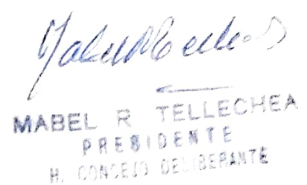 MABEL R TELLECHEA
PRESIDENTE
H. CONCEJO DELIBERANTE